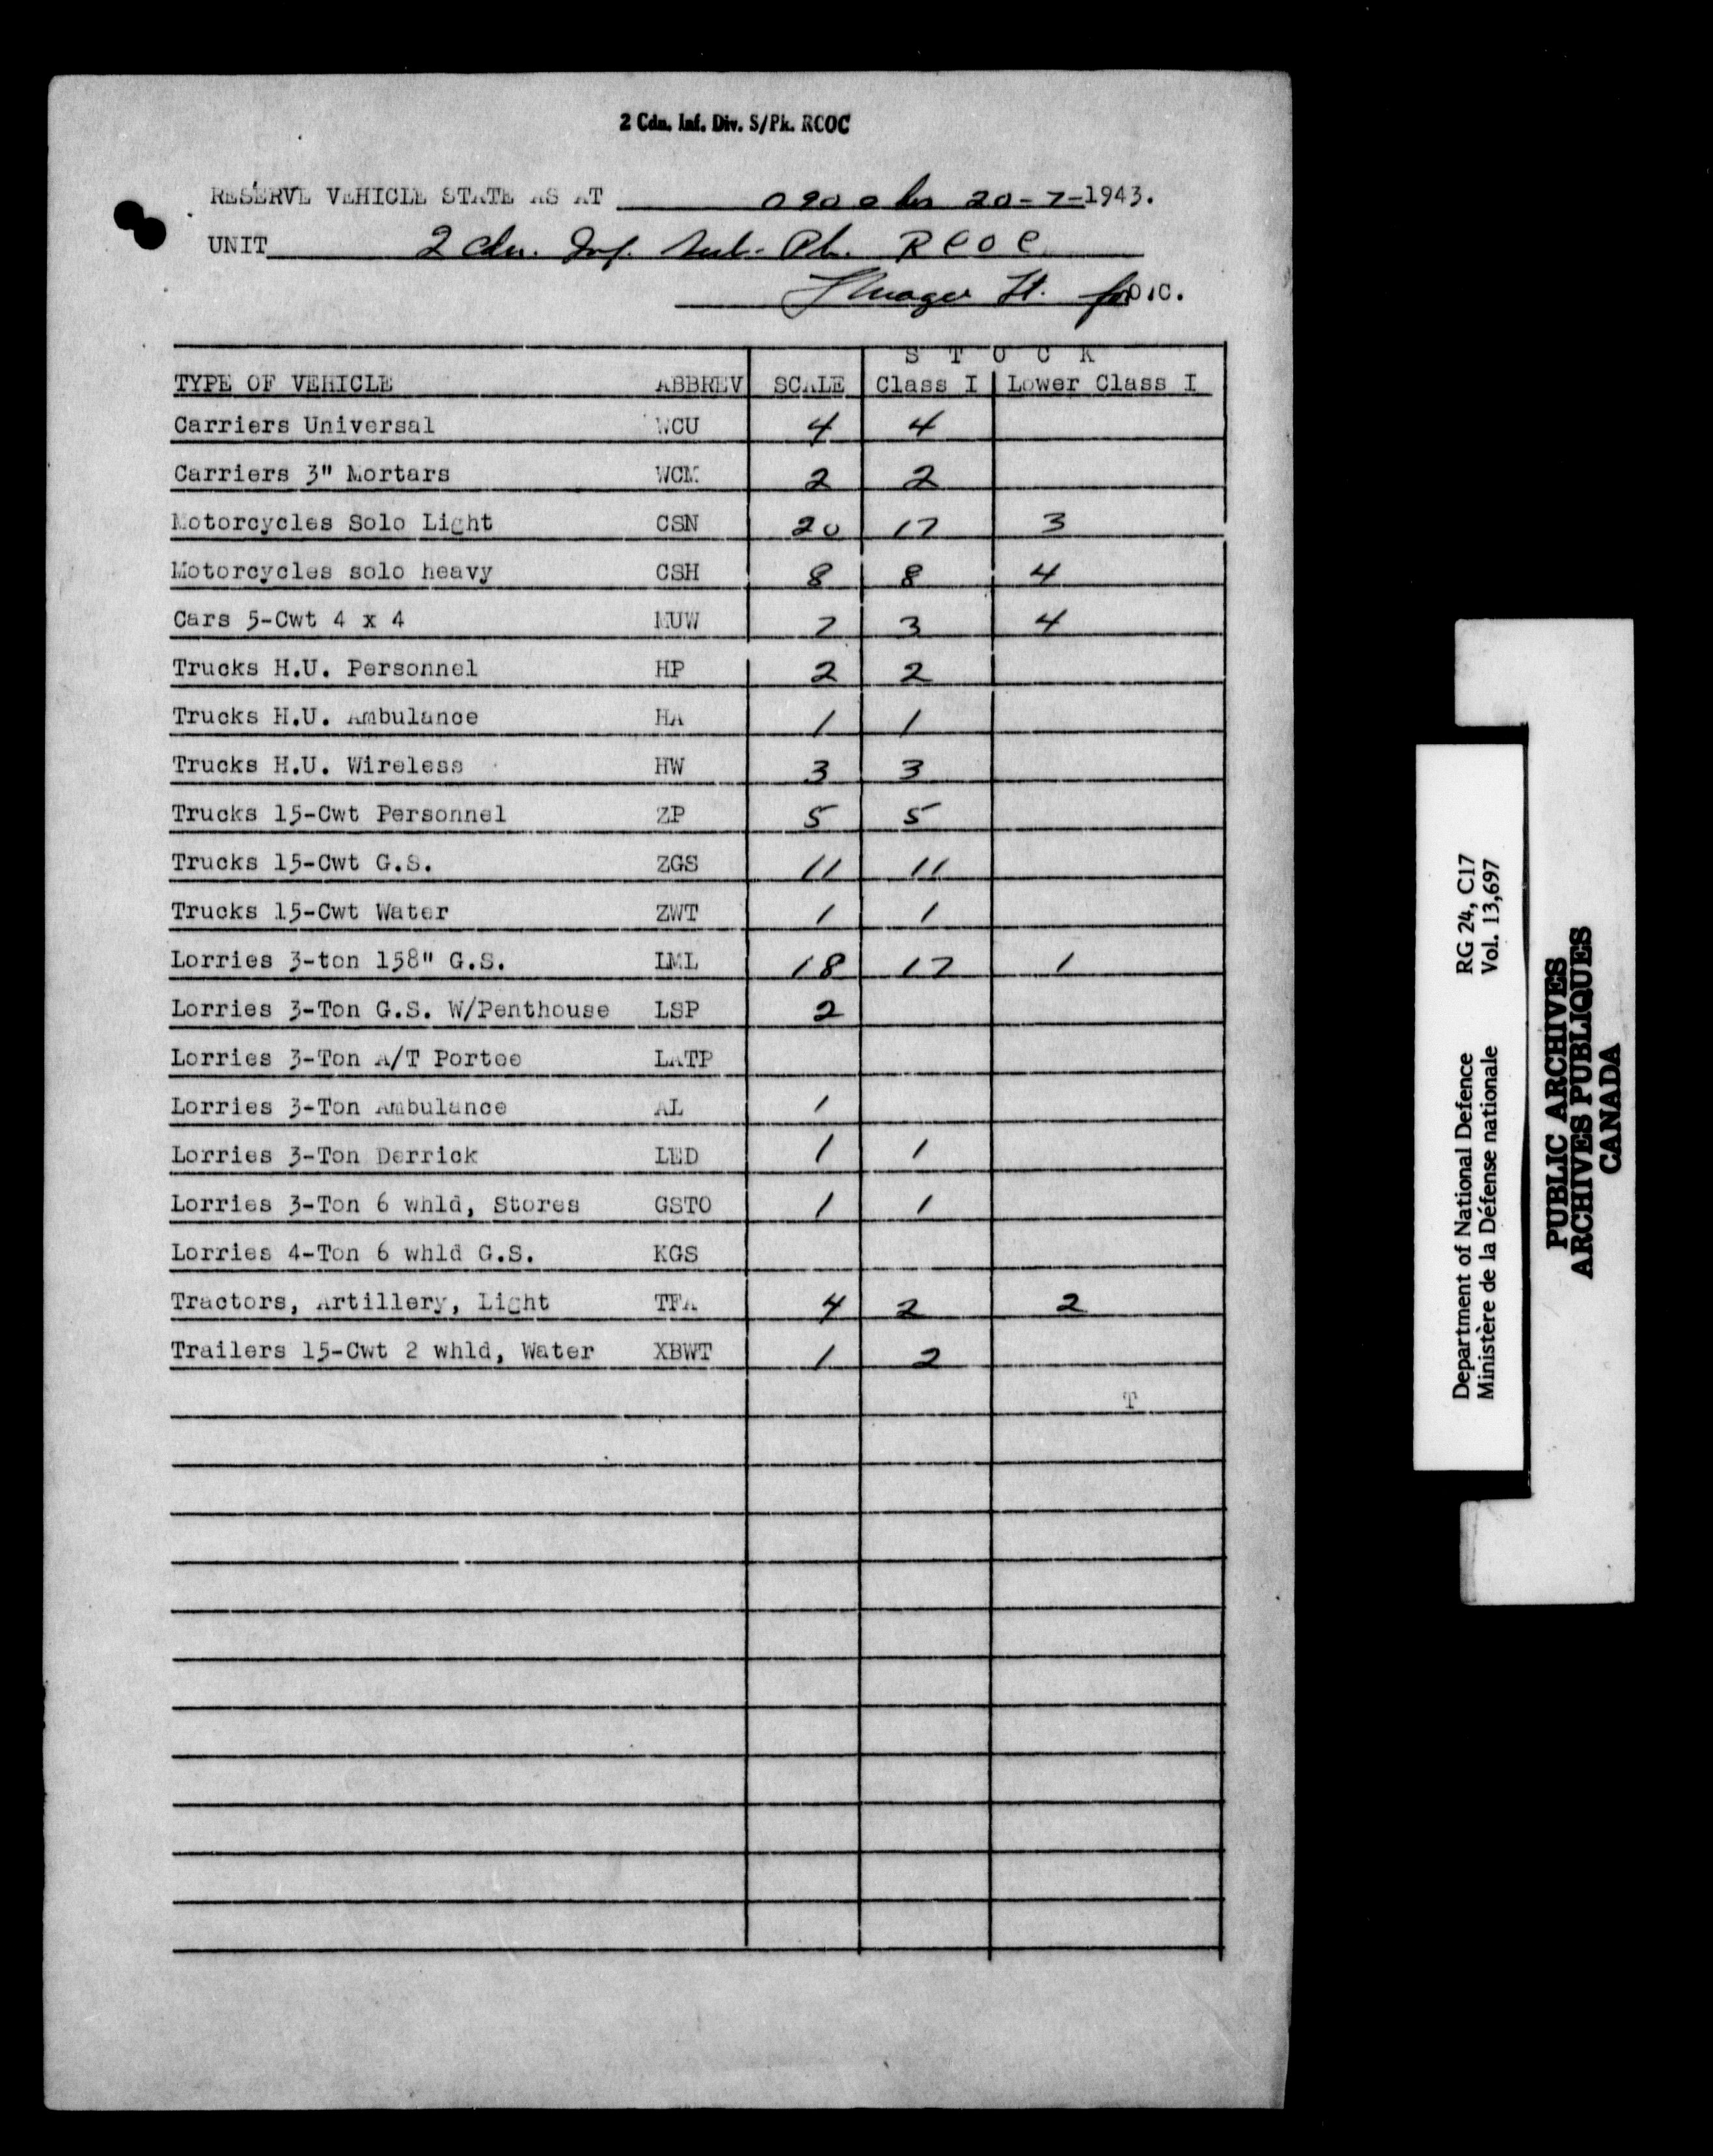 2 Cdn. Inf. Div. S/Pk. RCOC
RESERVE VEHICLE STATE AS AT 0900 hr 20-7-1943.
UNIT 2 Cdn. Inf. Sub. Pk. RCOC
Lt. for O.C.
S T O C K
TYPE OF VEHICLE ABBREV SCALE Class I Lower Class I
Carriers Universal WCU 4 4
Carriers 3" Mortars WCM 2 2
Motorcycles Solo Light CSN 20 17 3
Motorcycles solo heavy CSH 8 8 4
Cars 5-Cwt 4 x 4 MUW 7 3 4
Trucks H.U. Personnel HP 2 2
Trucks H.U. Ambulance HA 1 1
Trucks H.U. Wireless HW 3 3
Trucks 15-Cwt Personnel ZP 5 5
Trucks 15-Cwt G.S. ZGS 11 11
Trucks 15-Cwt Water ZWT 1 1
Lorries 3-ton 158" G.S. LML 18 17 1
Lorries 3-Ton G.S. W/Penthouse LSP 2
Lorries 3-Ton A/T Portee LATP
Lorries 3-Ton Ambulance AL 1
Lorries 3-Ton Derrick LED 1 1
Lorries 3-Ton 6 whld, Stores GSTO 1 1
Lorries 4-Ton 6 whld G.S. KGS
Tractors, Artillery, Light TFA 4 2 2
Trailers 15-Cwt 2 whld, Water XBWT 1 2
T
Department of National Defence RG 24, C17
Ministère de la Défense nationale Vol. 13,697
PUBLIC ARCHIVES
ARCHIVES PUBLIQUES
CANADA